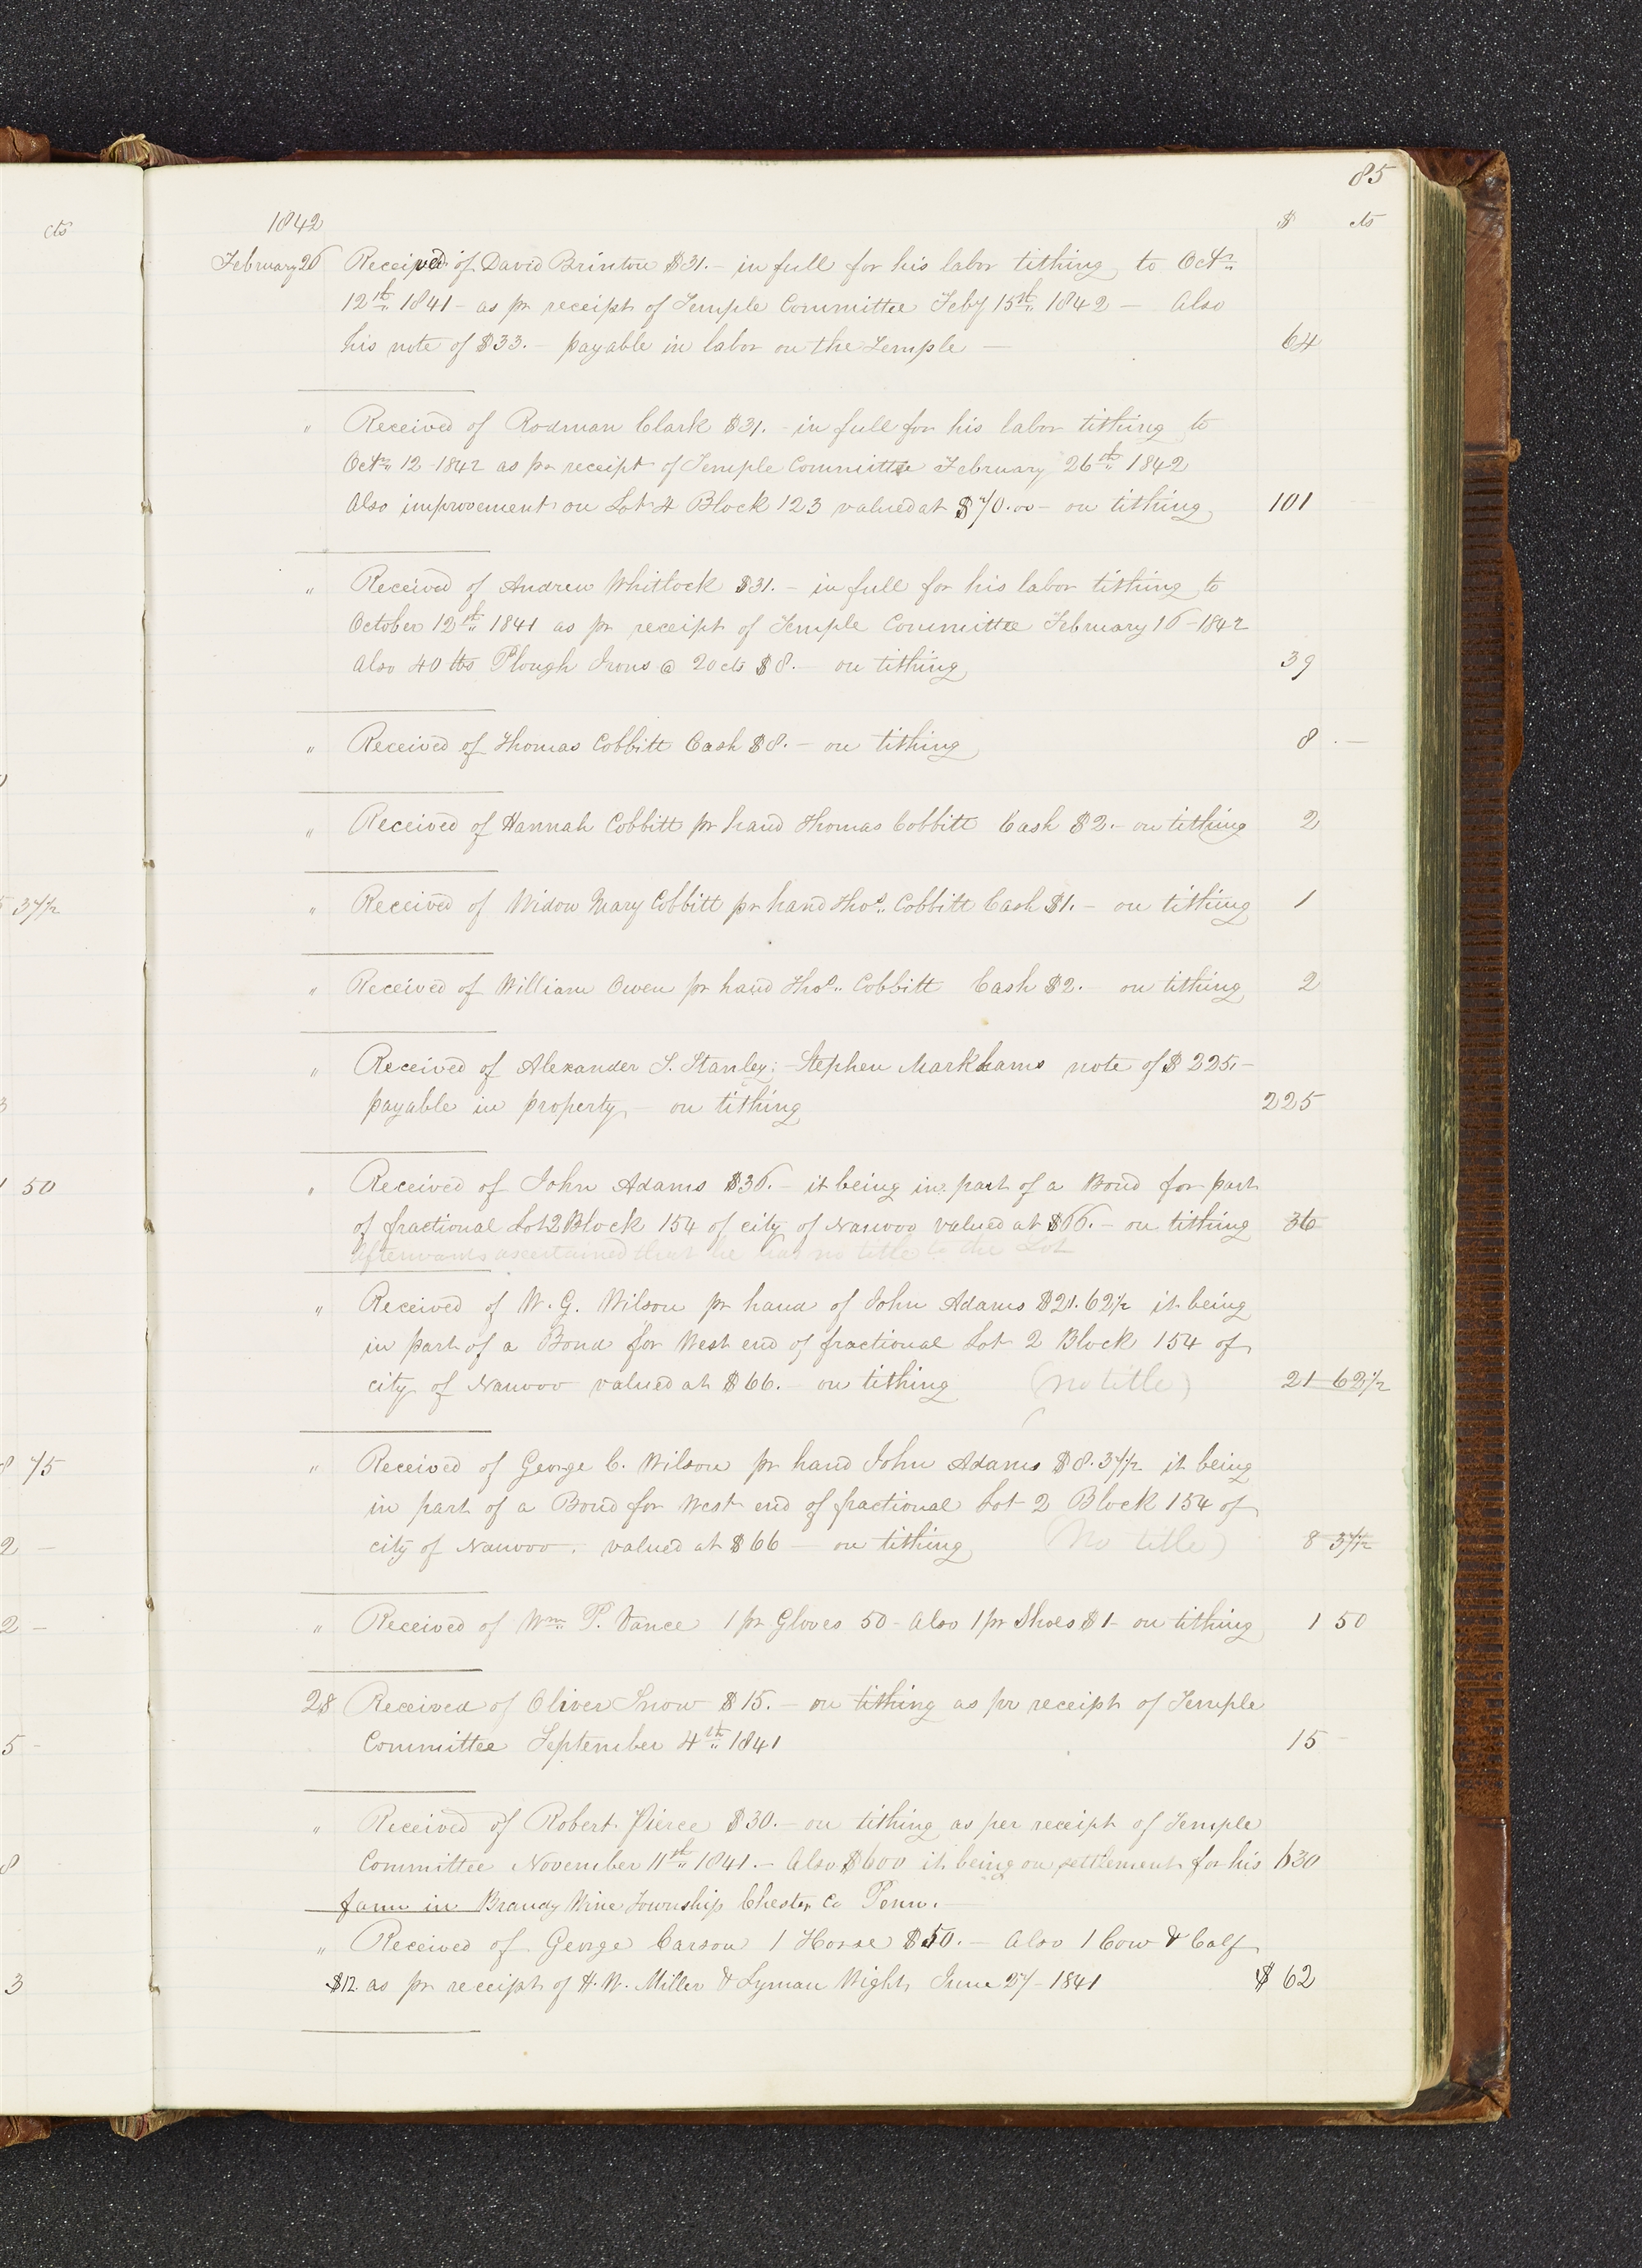 85
1842 $ cts
February 26 Received of David Brinton $31.- in full for his labor tithing, to Octr
12th 1841 - as pr receipt of Temple Committee Feby 15th 1842 - Also
his note of $33.- payable in labor on the Temple - 64
" Received of Rodman Clark $31.- in full for his labor tithing to
Octr 12 1842 as pr receipt of Temple Committee February 26th 1842
Also improvement on Lot 4 Block 123 valued at $70.00 - on tithing 101
" Received of Andrew Whitlock $31.- in full for his labor tithing to
October 12th 1841 as pr receipt of Temple Committee February 16 - 1842
Also 40 lbs Plough Irons @ 20 cts $8.- on tithing 39
" Received of Thomas Cobbitt Cash $8.- on tithing 8 -
" Received of Hannah Cobbitt pr hand Thomas Cobbitt Cash $2.- on tithing 2
" Received of Widow Mary Cobbitt pr hand Thos. Cobbitt Cash $1.- on tithing 1
" Received of William Owen pr hand Thos. Cobbitt Cash $2.- on tithing 2
" Received of Alexander S. Stanley; Stephen Markhams note of $225.-
payable in property - on tithing 225
" Received of John Adams $36.- it being in part of a Bond for part
of fractional Lot 2 Block 154 of city of Nauvoo valued at $66.- on tithing 36
afterwards ascertained that he has no title to the Lot
" Received of W. G. Wilson pr hand of John Adams $21.62½ it being
in part of a Bond for West end of fractional Lot 2 Block 154 of
city of Nauvoo valued at $66.- on tithing (no title) 21 62½
" Received of George C. Wilson pr hand John Adams $8.37½ it being
in part of a Bond for West end of fractional Lot 2 Block 154 of
city of Nauvoo. valued at $66 - on tithing (No title) 8 37½
" Received of Wm P. Vance 1 pr Gloves 50 - Also 1 pr Shoes $1 - on tithing 1 50
28 Received of Oliver Snow $15.- on tithing as pr receipt of Temple
Committee September 4th 1841 15 -
" Received of Robert Pierce $30.- on tithing as per receipt of Temple
Committee November 11th 1841.- Also $600 it being on settlement for his 630
farm in Brandy Wine Township Chester Co Penn.-
" Received of George Carson 1 Horse $50.- Also 1 Cow & Calf
$12. as pr receipt of H. W. Miller & Lyman Wight June 27 - 1841 $ 62
cts
5 37½
50
75
2 -
2 -
5 -
8
3